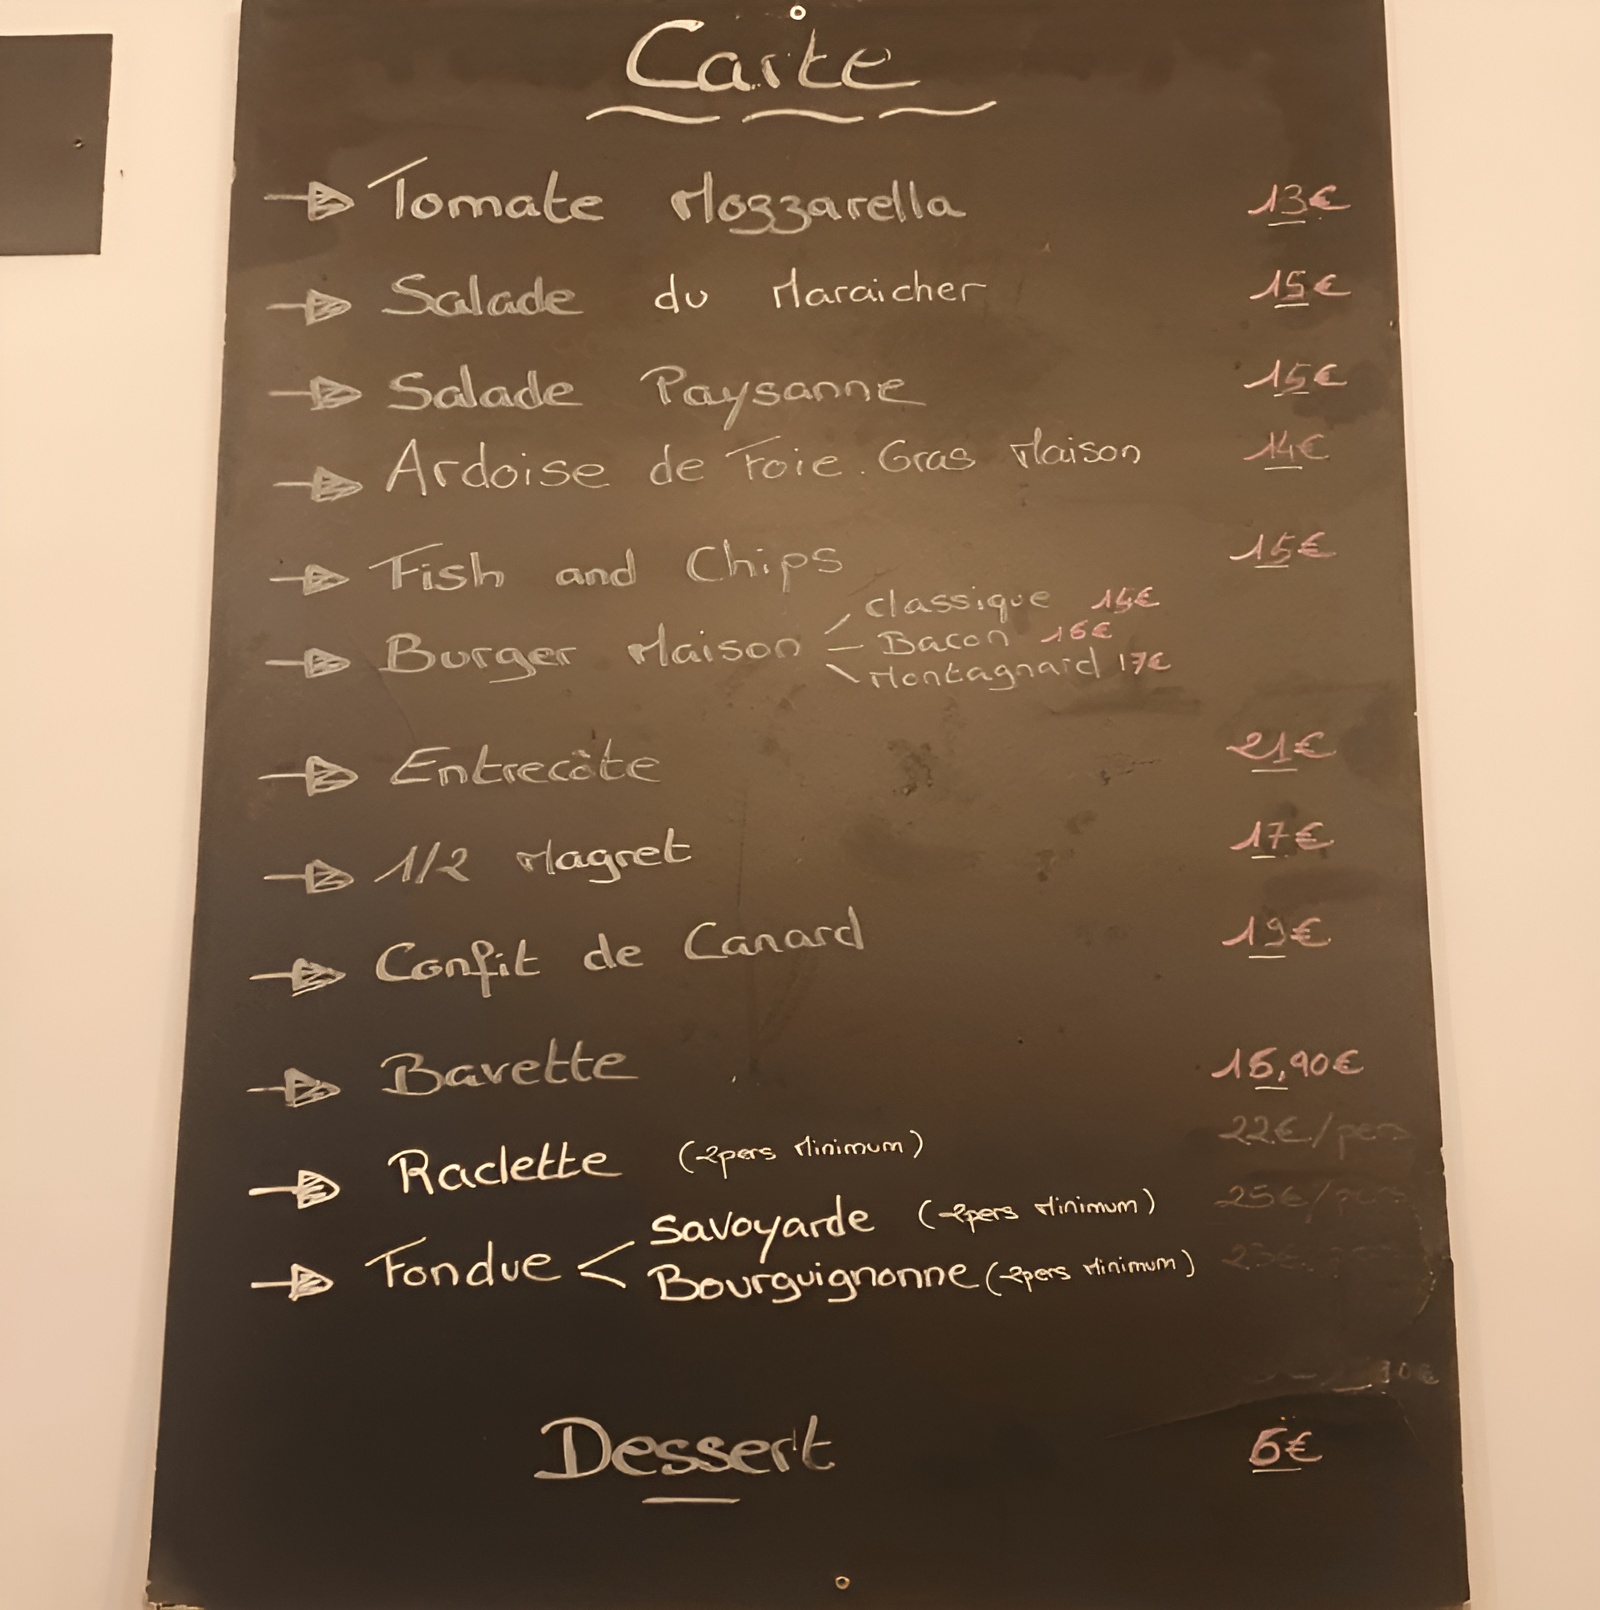 Carte
Tomate Mozzarella 13€
Salade du Maraicher 15€
Salade Paysanne 15€
Ardoise de Foie Gras Maison 14€
Fish and Chips 15€
classique 14€
Burger Maison Bacon 16€
Montagnard 17€
Entrecôte 21€
1/2 Magret 17€
Confit de Canard 19€
Bavette 16,90€
Raclette (2pers Minimum) 22€/pers
Savoyarde (2pers Minimum) 25€/pers
Fondue
Bourguignonne (2pers Minimum) 23€
Dessert 6€